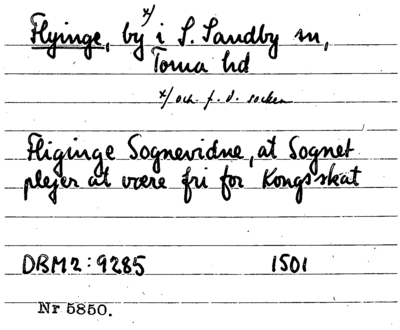 Flyinge, by x/ i S. Sandby sn,
Torna hd
x/ och f. d. socken
Fliginge Sognevidne, at Sognet
plejer at være fri for Kongsskat
DBM2:9285 1501
Nr 5850.